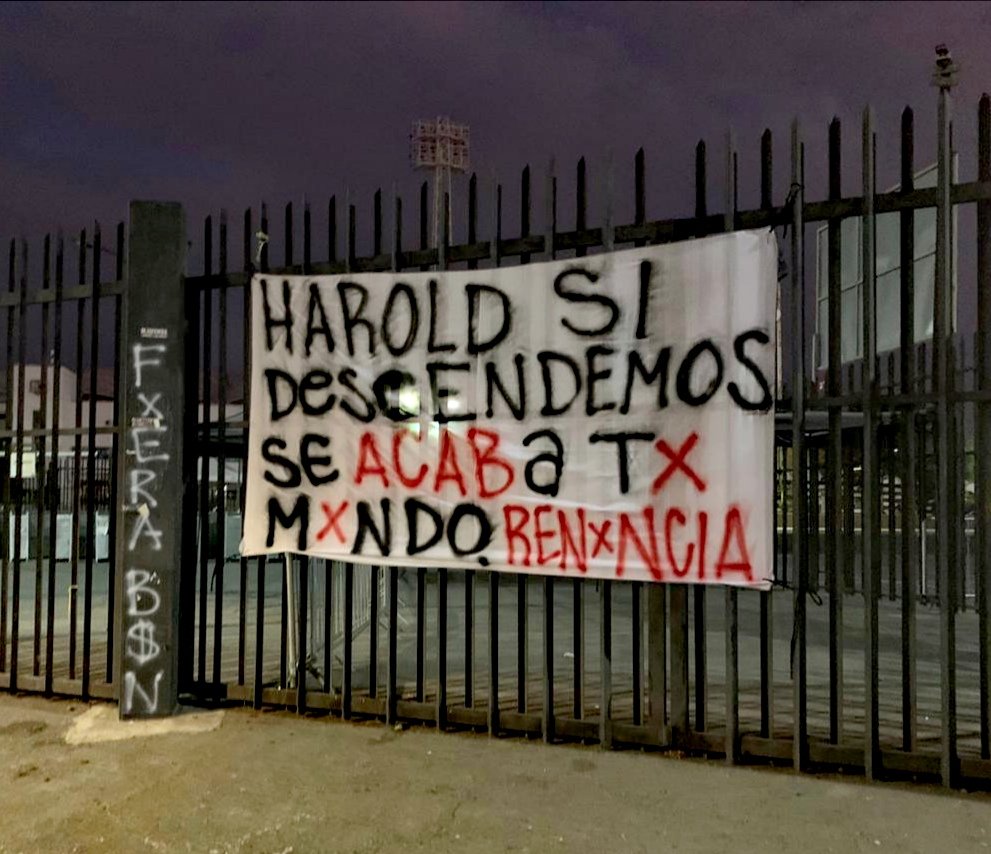 HAROLD SI
DesCENDEMOS
SE ACABa Tx
MxNDO. RENxNCIA
FxERA B$N